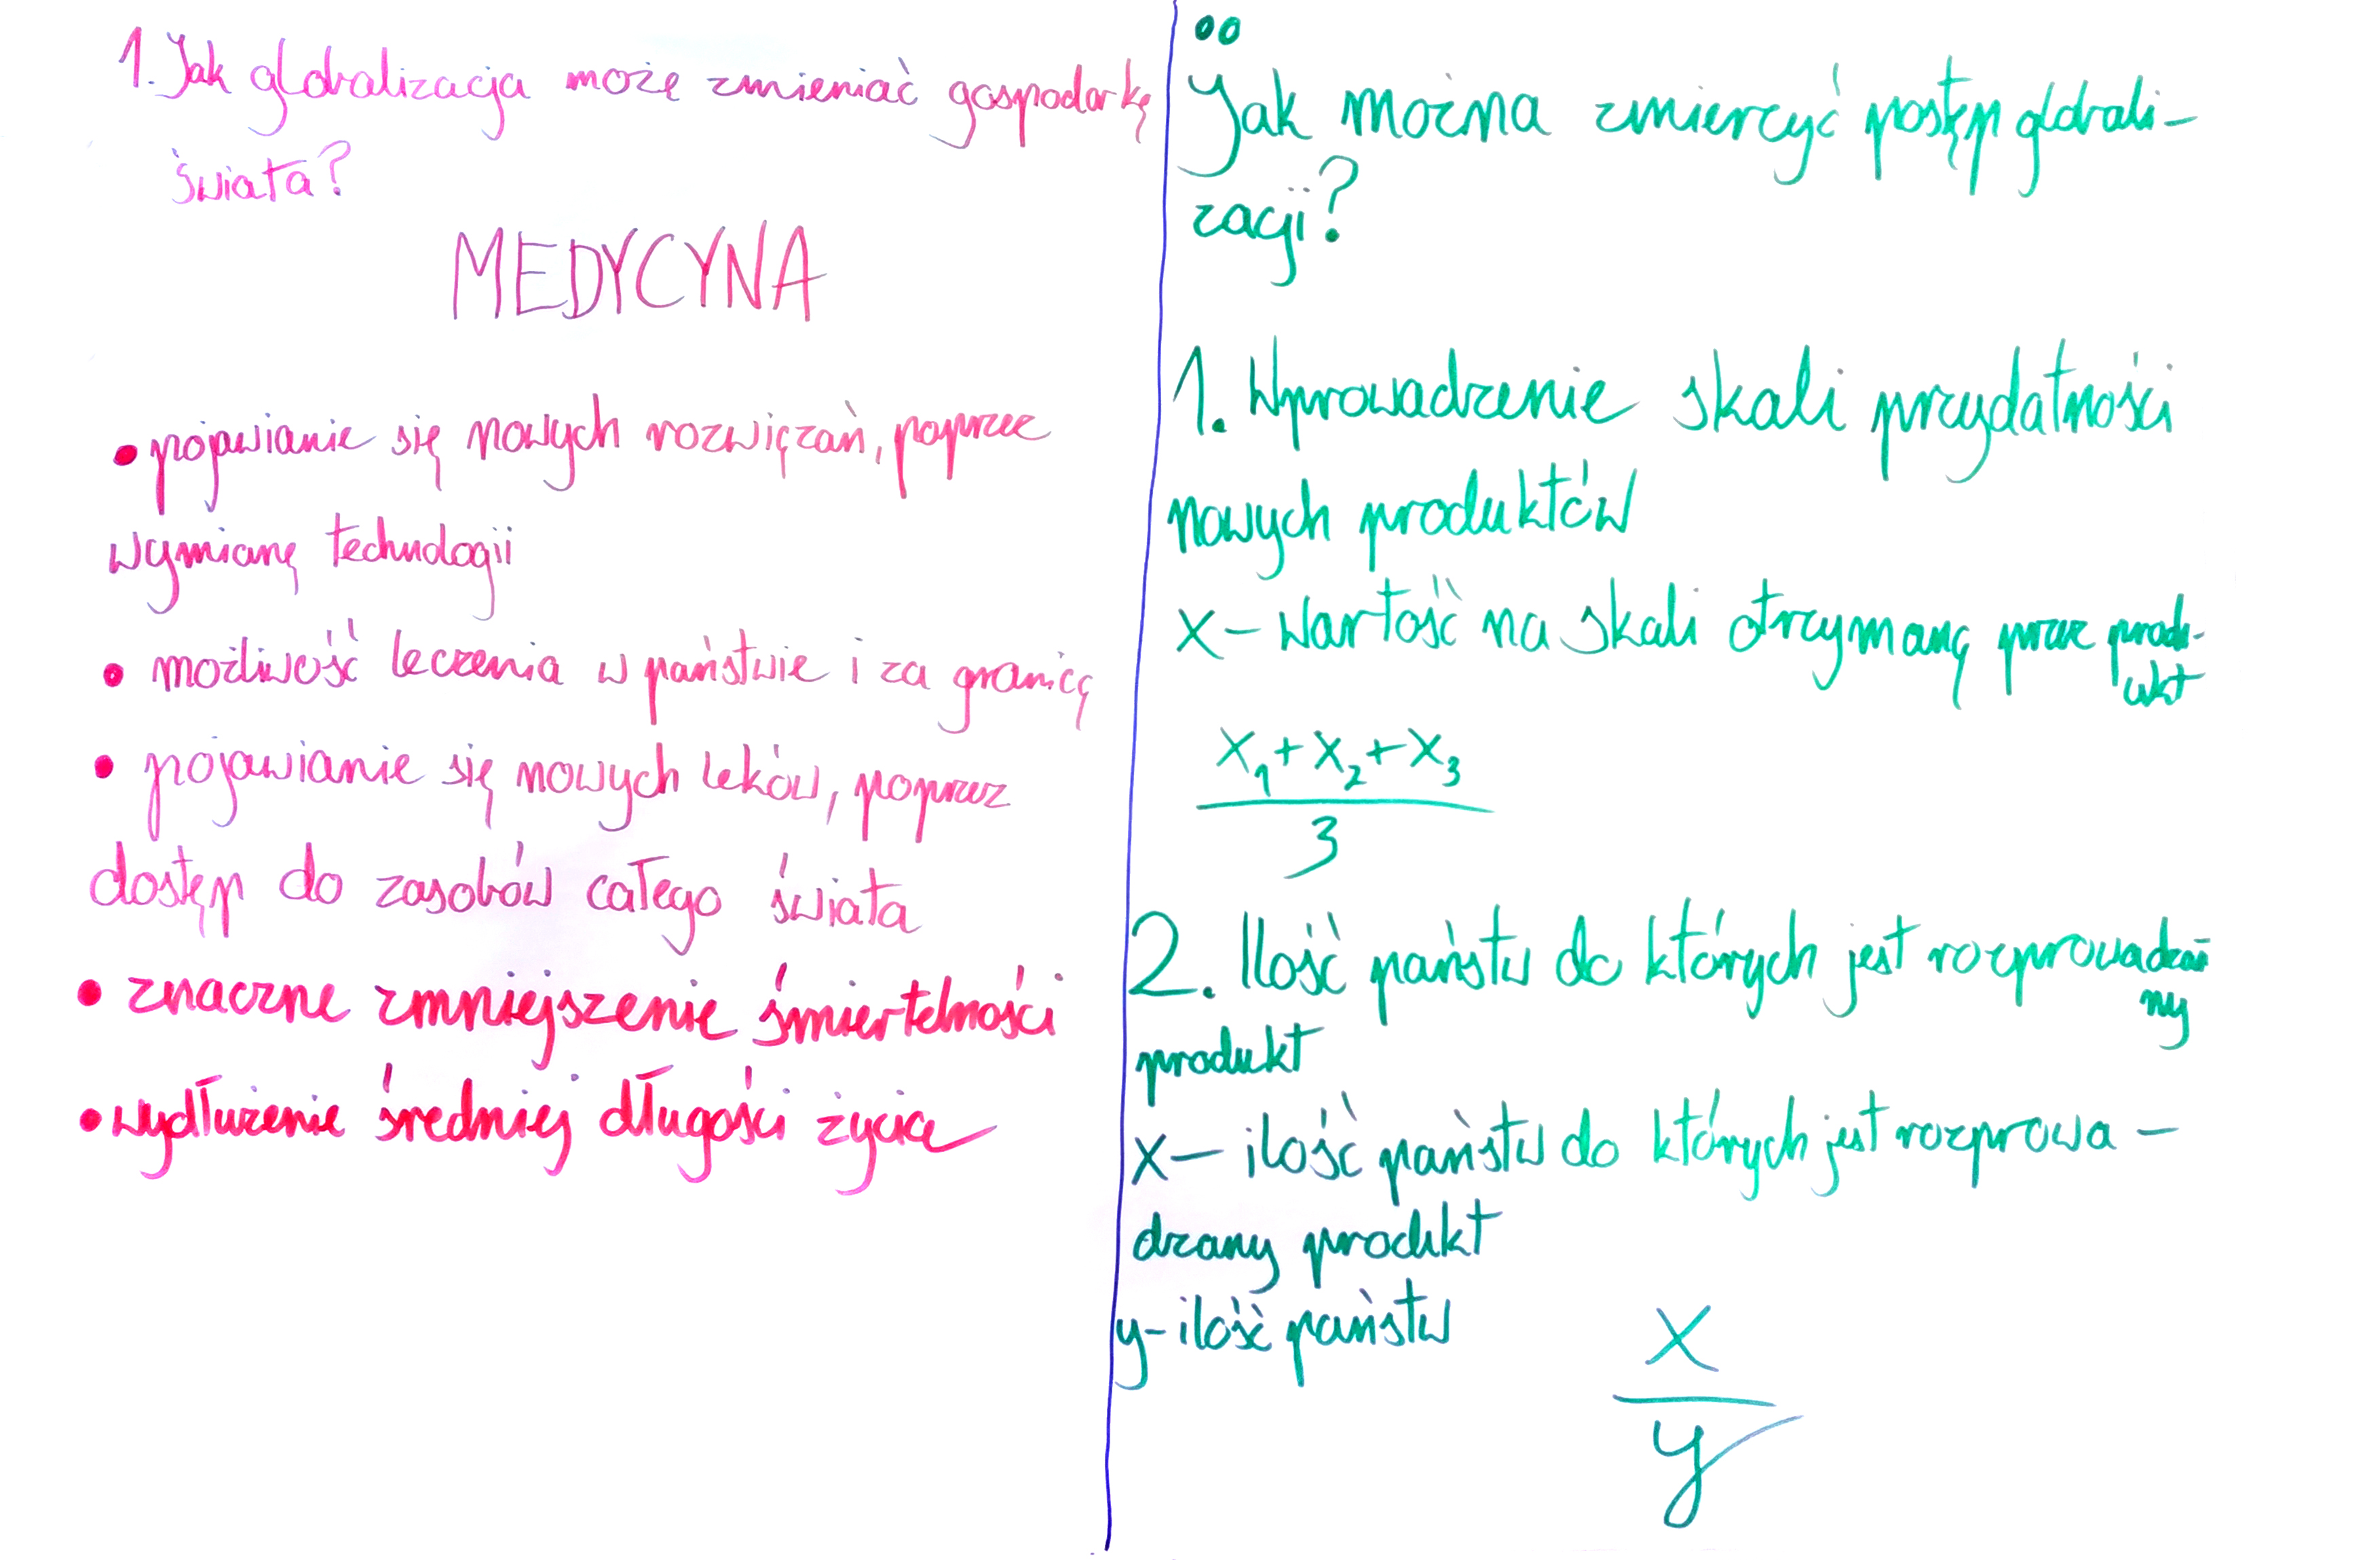 1. Jak globalizacja możę zmieniać gospodarkę
świata?
MEDYCYNA
• pojawianie się nowych rozwiązań, poprzez
wymianę technologii
• możliwość leczenia w państwie i za granicą
• pojawianie się nowych leków, poprzez
dostęp do zasobów całego świata
• znaczne zmniejszenie śmiertelności
• wydłużenie średniej długości życia
Jak można zmierzyć postęp globali-
zacji?
1. Wprowadzenie skali przydatności
nowych produktów
x - wartość na skali otrzymaną przez prod-
ukt
x₁ + x₂ + x₃
3
2. Ilość państw do których jest rozprowadza
ny
produkt
x - ilość państw do których jest rozprowa -
dzany produkt
y - ilość państw
x
y